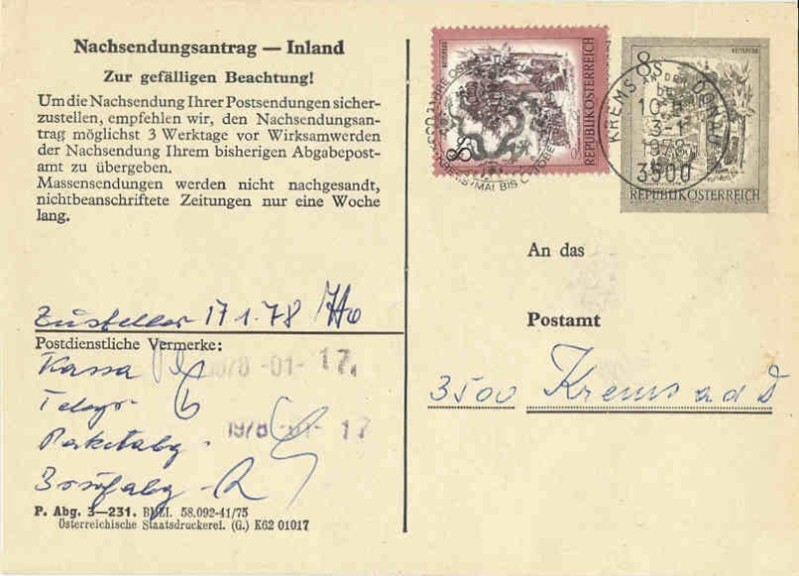 Nachsendungsantrag — Inland
Zur gefälligen Beachtung!
Um die Nachsendung Ihrer Postsendungen sicher-
zustellen, empfehlen wir, den Nachsendungsan-
trag möglichst 3 Werktage vor Wirksamwerden
der Nachsendung Ihrem bisherigen Abgabepost-
amt zu übergeben.
Massensendungen werden nicht nachgesandt,
nichtbeanschriftete Zeitungen nur eine Woche
lang.
Zusteller 17 1. 78
Postdienstliche Vermerke:
Kassa
1978 -01- 17.
Telegr
Paketabg.
1978 -01- 17
Briefabg.
P. Abg. 3—231. BMfI. 58.092-41/75
Österreichische Staatsdruckerei. (G.) K62 01017
8
REPUBLIK ÖSTERREICH
MAI BIS OKTOBER
8
KREMS
DONAU
3500
REPUBLIK ÖSTERREICH
An das
Postamt
3500 Krems a d D